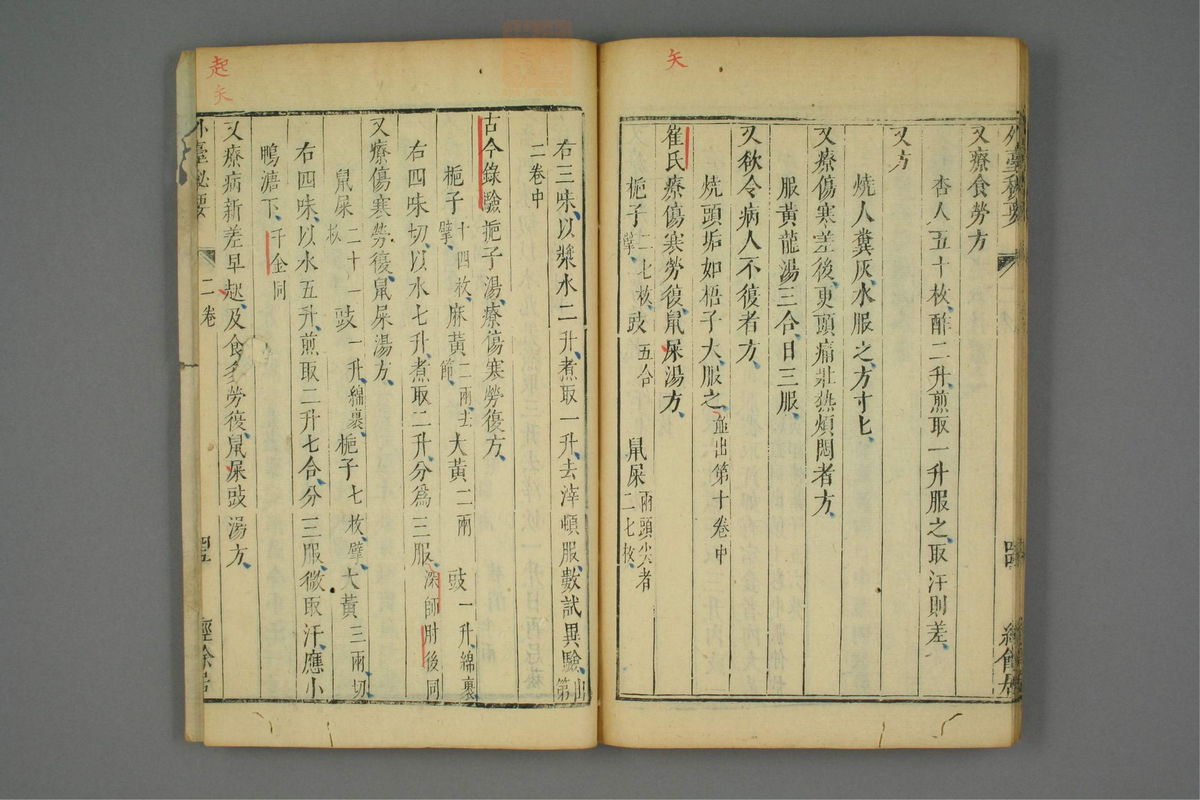 矢
外臺秘要
經餘居
又療食勞方
杏人五十枚、酢二升煎取一升服之取汗則差、
又方
燒人糞灰、水服之方寸匕、
又療傷寒差後、更頭痛壯熱煩悶者方、
服黃龍湯三合、日三服、
又欲令病人不復者方、
燒頭垢如梧子大、服之、並出第十卷中
崔氏療傷寒勞復、鼠屎湯方、
梔子二七枚、擘、豉五合 鼠屎兩頭尖者二七枚、
起矢
右三味、以漿水二升、煮取一升、去滓頓服、數試異驗、出第
二卷中
古今錄驗梔子湯、療傷寒勞復方、
梔子十四枚、擘、麻黃二兩、去節、大黃二兩 豉一升、綿裹
右四味切、以水七升、煮取二升、分爲三服、深師肘後同
又療傷寒勞復、鼠屎湯方、
鼠屎二十一枚 豉一升、綿裹、梔子七枚、擘、大黃三兩、切
右四味、以水五升、煎取二升七合、分三服、微取汗、應小
鴨溏下、千金同
又療病新差早起、及食多勞復、鼠屎豉湯方、
外臺秘要
二卷
經餘居